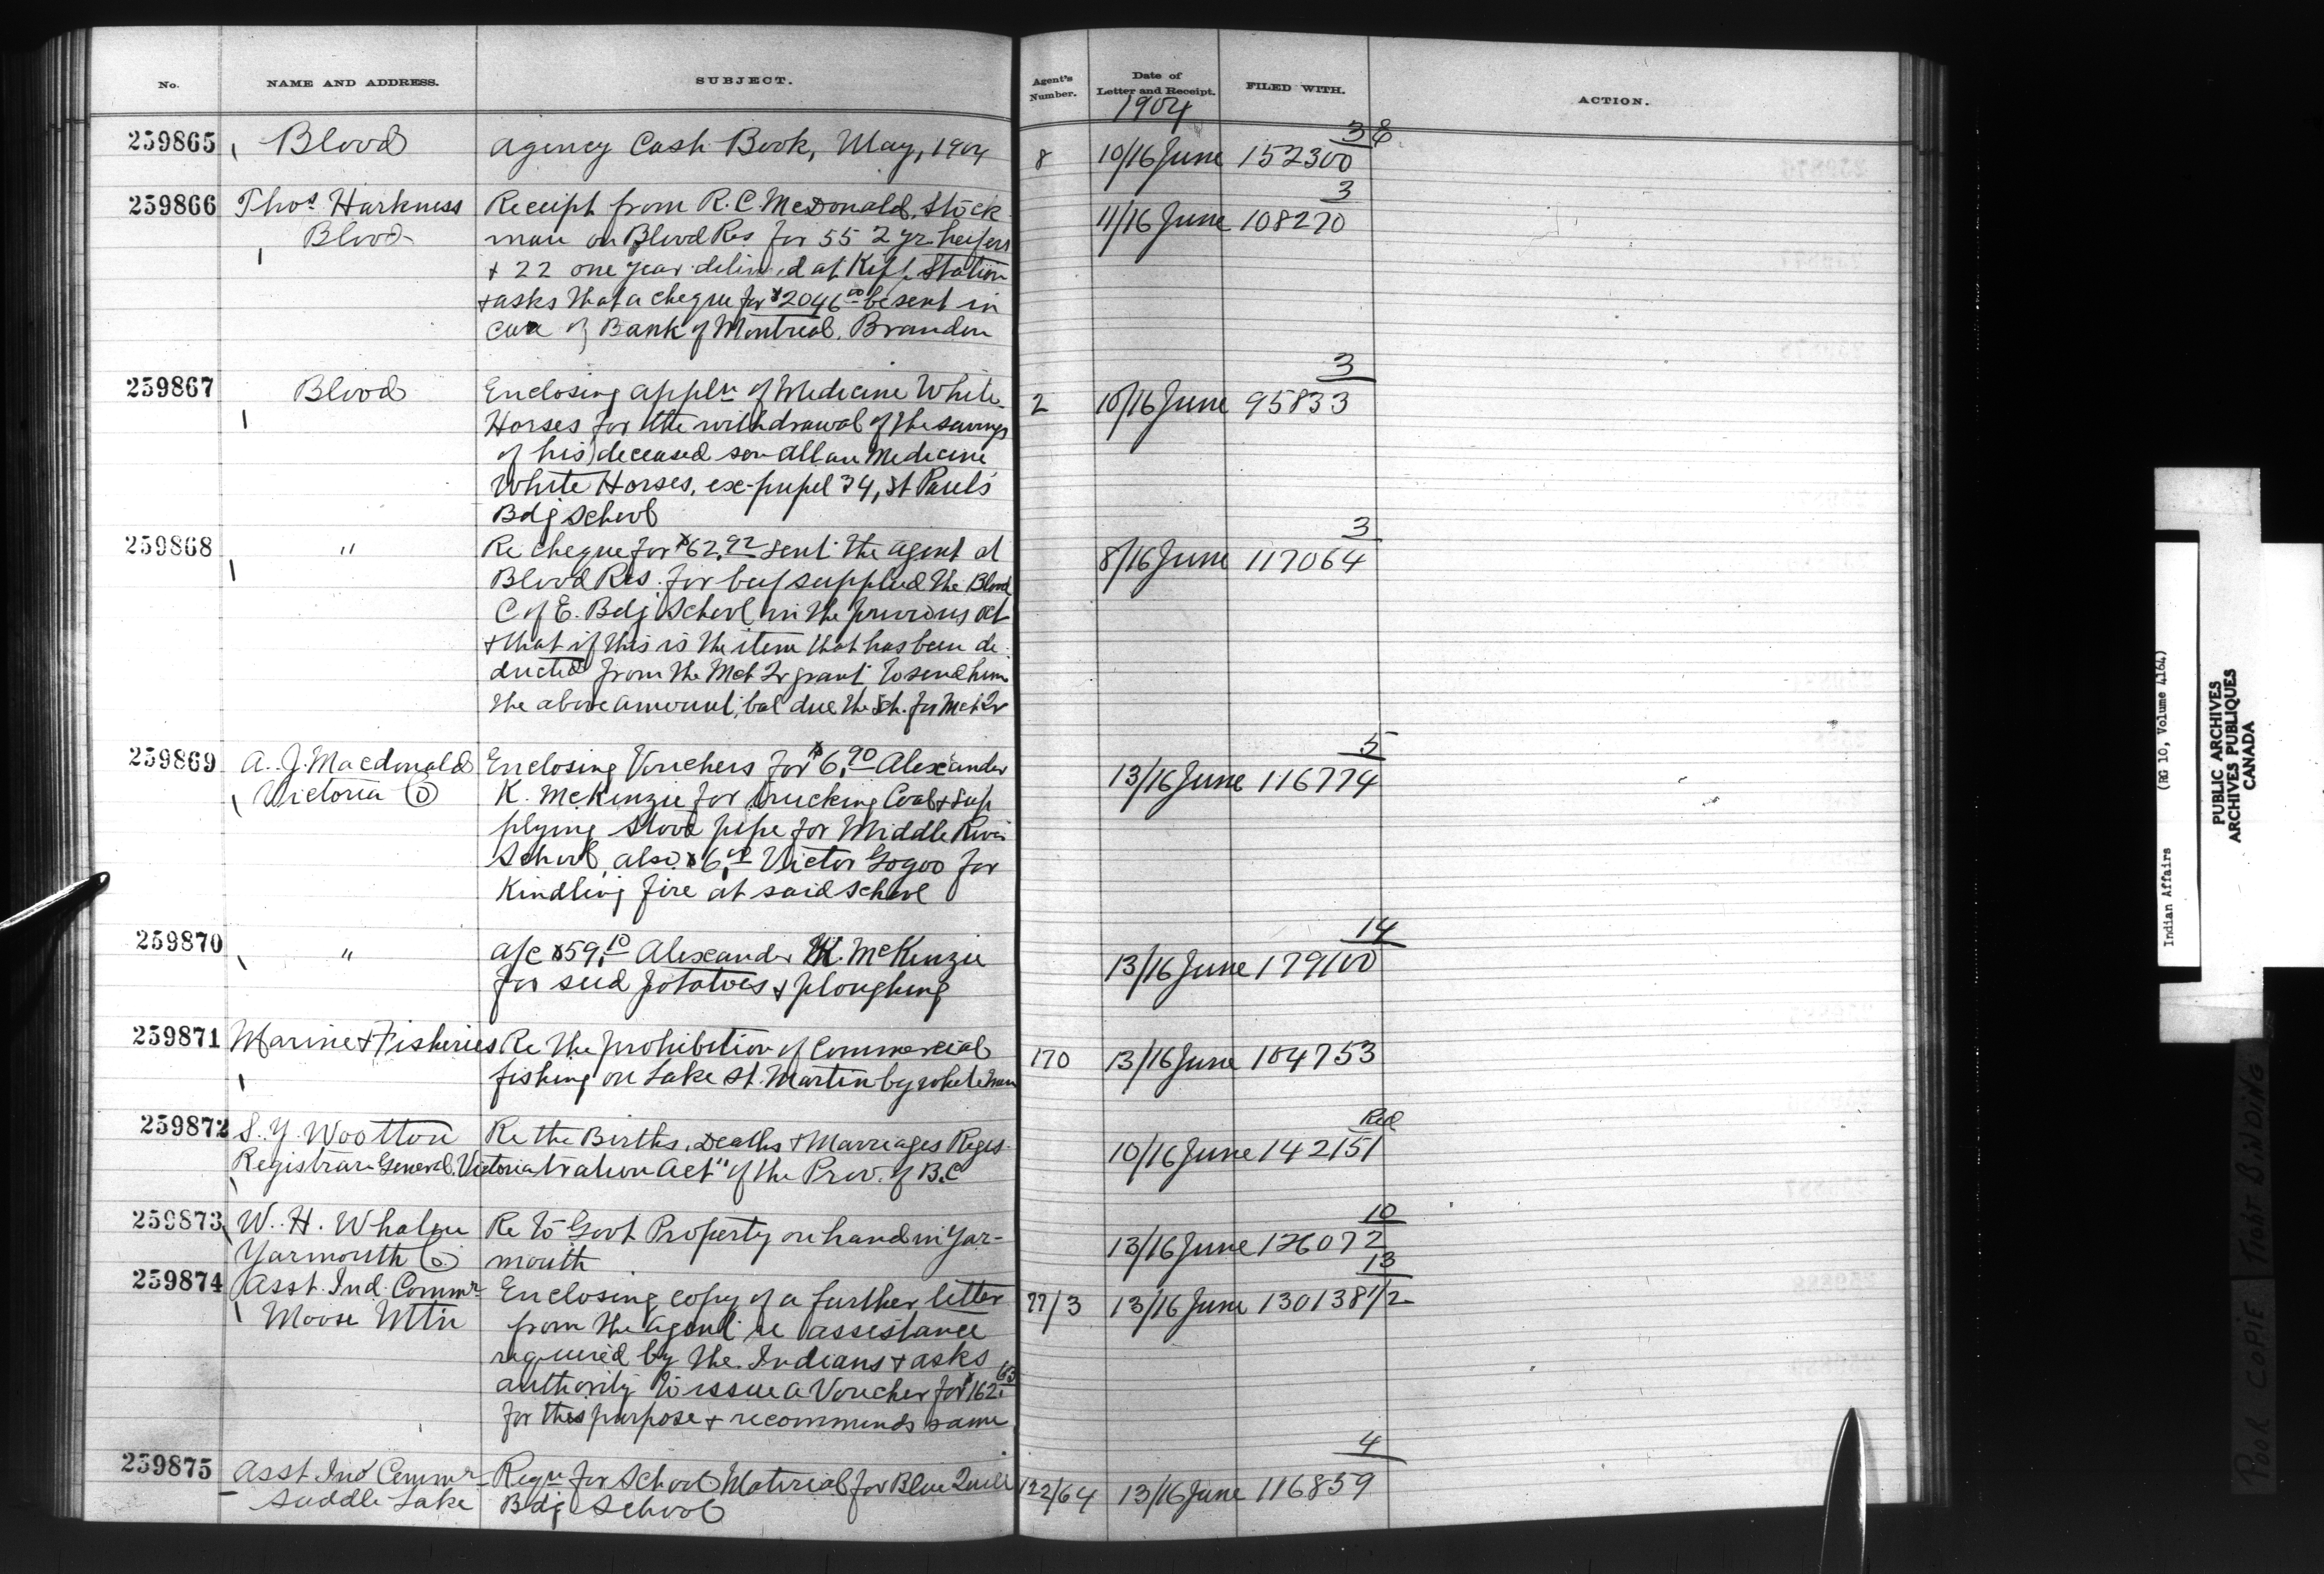 No. NAME AND ADDRESS. SUBJECT. Agent's Number. Date of Letter and Receipt. FILED WITH. ACTION.
1904
259865 Blood Agency Cash Book, May, 1904 8 10/16 June 152300 38
259866 Thos Harkness Receipt from R.C. McDonald, Stock 11/16 June 108270 3
Blood man on Blood Res for 55 2 yr heifers
+ 22 one year deliv'd at Kipp Station
+ asks that a cheque for $2046 00 be sent in
care of Bank of Montreal, Brandon
259867 Blood Enclosing appln of Medicine White 2 10/16 June 95833 3
Horses for the withdrawal of the savings
of his deceased son Allan Medicine
White Horses, ex-pupil 34, St Paul's
Bdg School
259868 " Re cheque for $62.92 sent the agent at 8/16 June 117064 3
Blood Res. for beef supplied the Blood
C of E. Bdg School in the previous Oct
+ that if this is the item that has been de-
ducted from the Mch Qr grant to send him
the above amount, bal due the Sch. for Mch Qr
259869 A. J. Macdonald Enclosing Vouchers for $6.90 Alexander 13/16 June 116774 5
Victoria Co K. McKenzie for trucking Coal + sup
plying stove pipe for Middle River
School, also $6.00 Victor Gogoo for
Kindling fire at said school
259870 " a/c $59.10 Alexander K. McKenzie 13/16 June 179100 14
for seed potatoes + ploughing
259871 Marine + Fisheries Re the prohibition of Commercial 170 13/16 June 104753
fishing on Lake St. Martin by white man
259872 S. Y. Wootton Re the Births, Deaths + Marriages Regis- 10/16 June 142151 Red
Registrar General, Victoria tration Act" of the Prov. of B.C
259873 W. H. Whalen Re to Govt Property on hand in Yar- 13/16 June 126072 10
Yarmouth Co. mouth
259874 Asst. Ind. Commr Enclosing copy of a further letter 77/3 13/16 June 130138 1/2 13
Moose Mtn from the agent re assistance
required by the Indians + asks
authority to issue a Voucher for $162.63
for this purpose + recommends same
259875 Asst Ind Commr Reqn for School Material for Blue Quill 122/64 13/16 June 116859 4
Saddle Lake Bdg School
Indian Affairs (RG 10, Volume 4164)
PUBLIC ARCHIVES
ARCHIVES PUBLIQUES
CANADA
POOR COPIE TIGHT BINDING